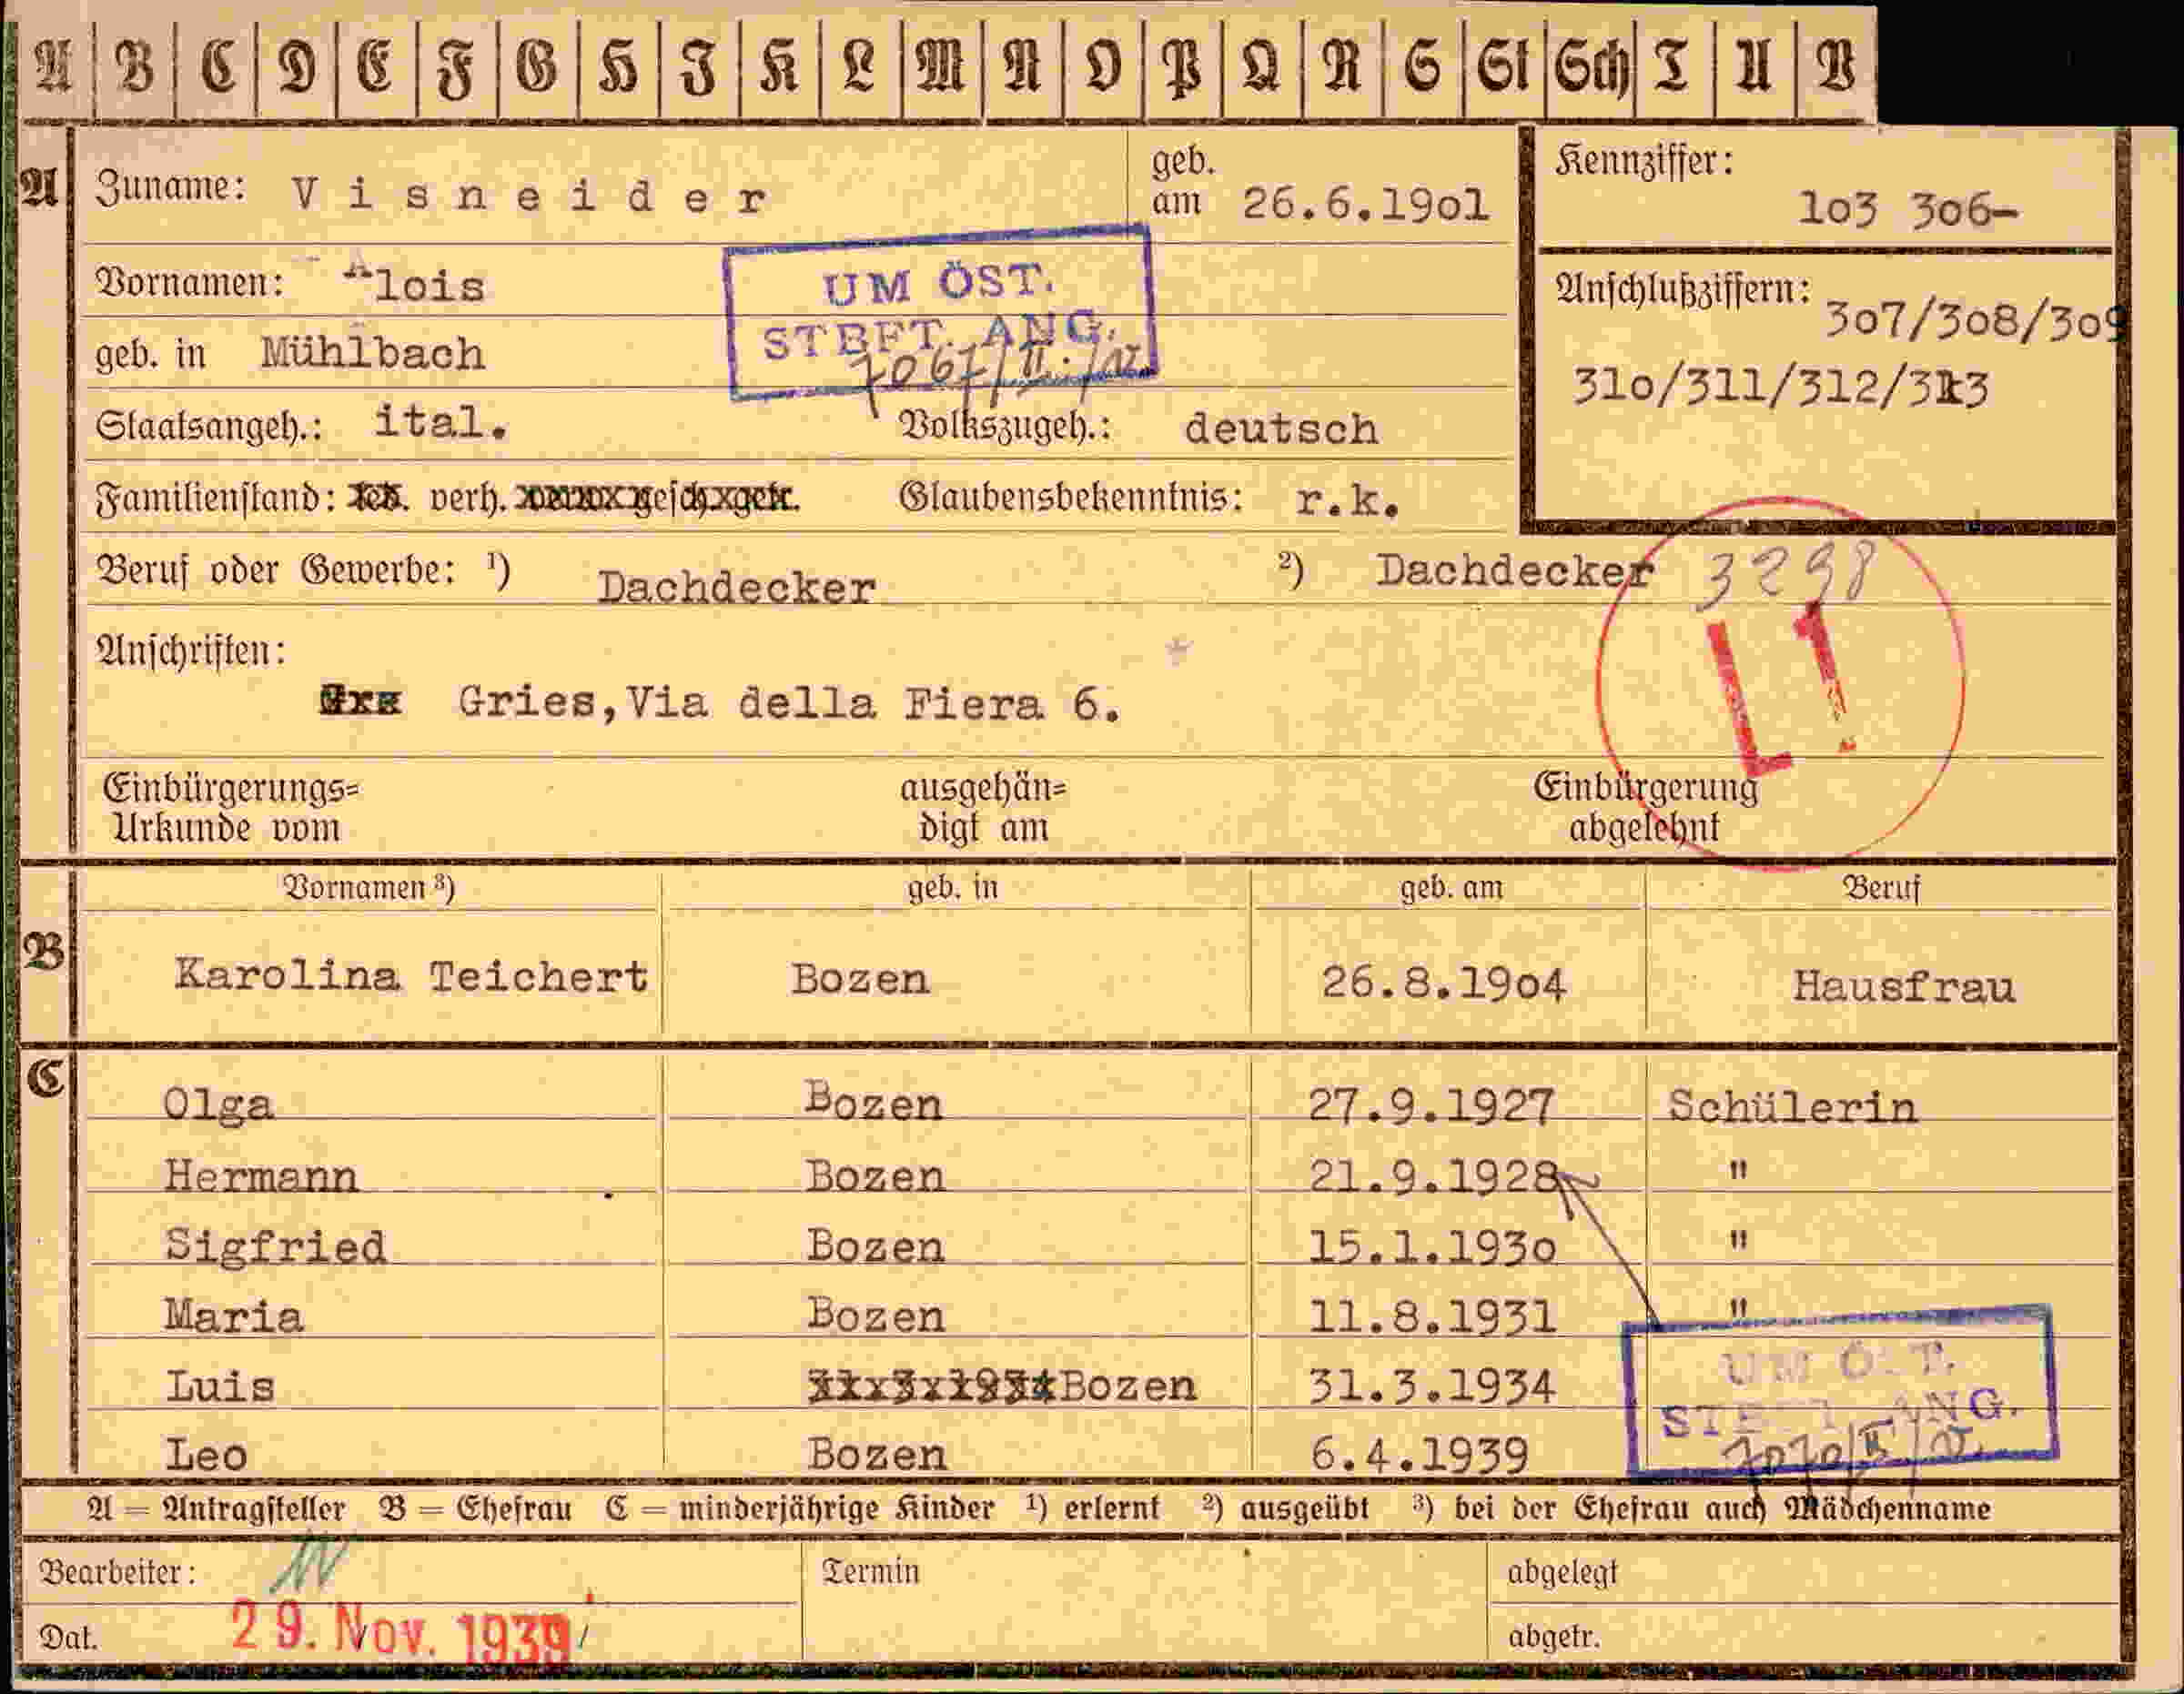 A B C D E F G H I K L M N O P Q R S St Sch T U V
A Zuname: Visneider geb. am 26.6.19o1 Kennziffer: 1o3 3o6-
Vornamen: Alois UM ÖST. Anschlußziffern: 3o7/3o8/3o9
geb. in Mühlbach STBFT. ANG. 31o/311/312/313
7067/II./
Staatsangeh.: ital. Volkszugeh.: deutsch
Familienstand: led. verh. gesch. getr. Glaubensbekenntnis: r.k.
Beruf oder Gewerbe: ¹) Dachdecker ²) Dachdecker 3298
L1
Anschriften:
Gries, Via della Fiera 6.
Einbürgerungs= Urkunde vom ausgehän= digt am Einbürgerung abgelehnt
Vornamen ³) geb. in geb. am Beruf
B Karolina Teichert Bozen 26.8.19o4 Hausfrau
C Olga Bozen 27.9.1927 Schülerin
Hermann Bozen 21.9.1928 "
Sigfried Bozen 15.1.193o "
Maria Bozen 11.8.1931 "
Luis Bozen 31.3.1934
Leo Bozen 6.4.1939
UM ÖST.
STBFT. ANG.
7070/II/
A = Antragsteller B = Ehefrau C = minderjährige Kinder ¹) erlernt ²) ausgeübt ³) bei der Ehefrau auch Mädchenname
Bearbeiter: Termin abgelegt
Dat. 29. Nov. 1939 abgetr.